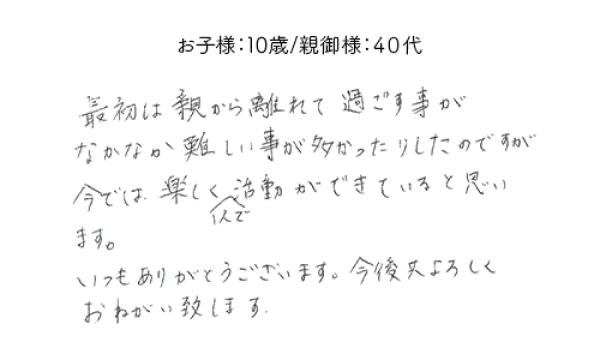 お子様：10歳/親御様：40代
最初は親から離れて過ごす事が
なかなか難しい事が多かったりしたのですが
今では楽しく1人で活動ができていると思い
ます。
いつもありがとうございます。今後共よろしく
おねがい致します.